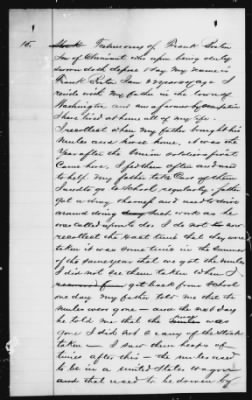 15. Testimony of Frank Lenten
Son of Claimant who upon being duly
sworn doth depose & say My name is
Frank Lenten I am 22 years of age I
reside with my father in the town of
Washington and am a farmer by occupation
I have lived at home all of my life.
I recollect when my father bought his
Mules and horse home. it was the
Year after the Union soldiers first
Came here, I fed them often and used
to help my father take Care of them
I used to go to School regularly father
got a dray through and used to drive
around doing such work as he
was called upon to do. I do not now
recollect the exact time that they were
taken it was some time in the summer
of the same year that we got the mules
I did not see them taken When I
got back from School
one day my father told me that the
mules were gone – and the next day
he told me that the was
gone I did not see any of the Stock
taken – I saw them heaps of
times after this – the mules used
to be in a united States wagon
and that used to be driven by